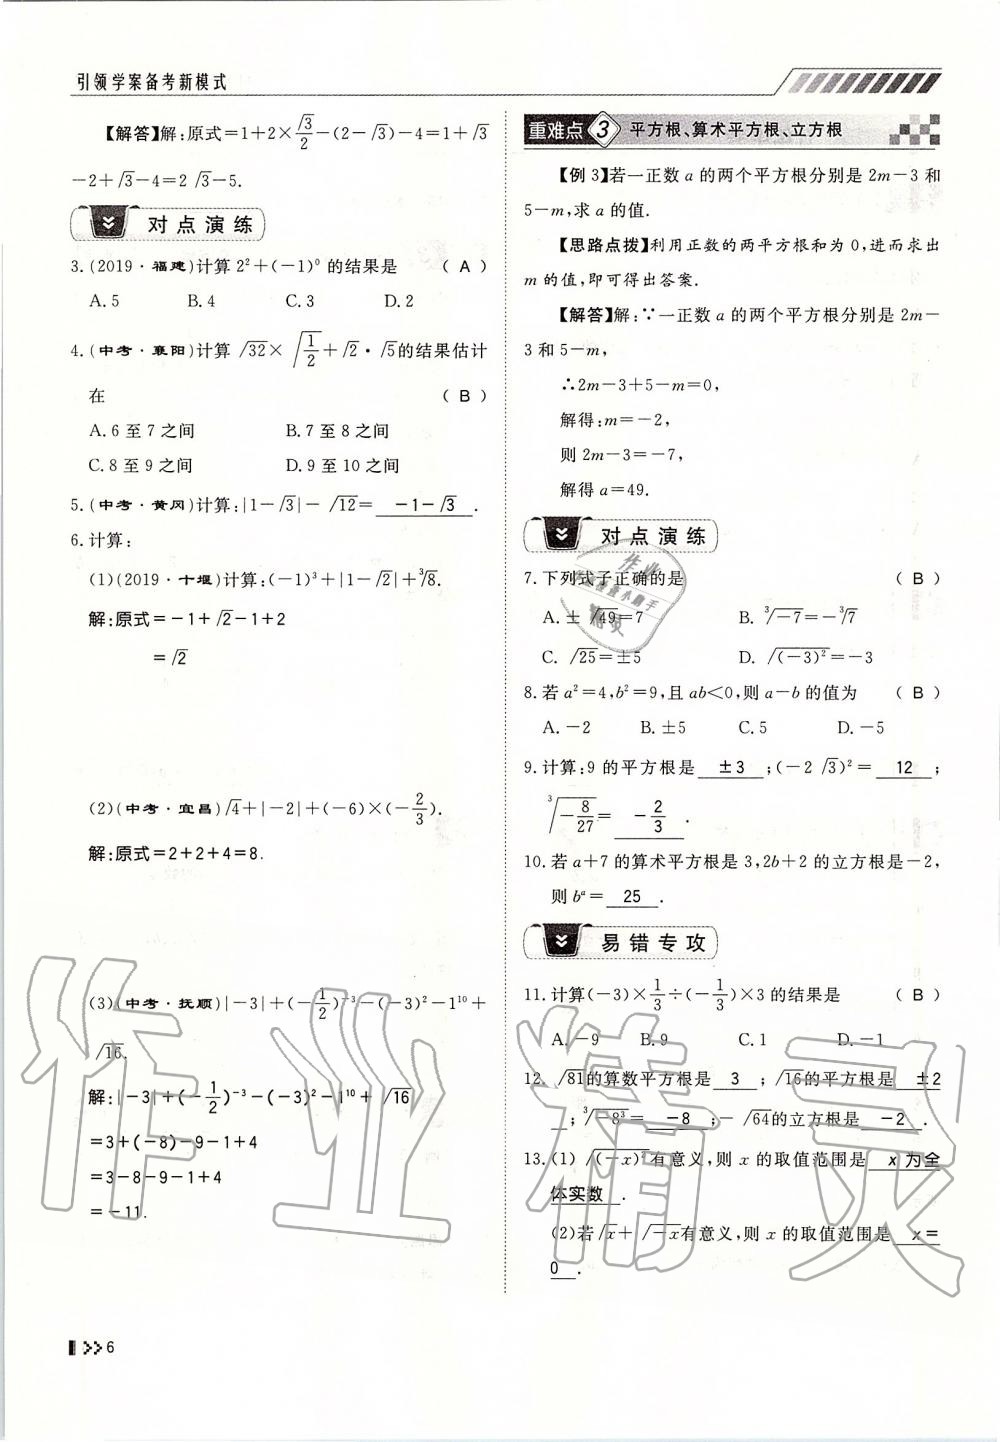 引领学案备考新模式
【解答】解:原式=1+2×√3/2-(2-√3)-4=1+√3
-2+√3-4=2√3-5.
对点演练
3.(2019·福建)计算2²+(-1)⁰的结果是 ( A )
A.5 B.4 C.3 D.2
4.(中考·襄阳)计算√32×√(1/2)+√2·√5的结果估计
在 ( B )
A.6至7之间 B.7至8之间
C.8至9之间 D.9至10之间
5.(中考·黄冈)计算:|1-√3|-√12= -1-√3 .
6.计算:
(1)(2019·十堰)计算:(-1)³+|1-√2|+³√8.
解:原式=-1+√2-1+2
=√2
(2)(中考·宜昌)√4+|-2|+(-6)×(-2/3).
解:原式=2+2+4=8.
(3)(中考·抚顺)|-3|+(-1/2)⁻³-(-3)²-1¹⁰+
√16.
解:|-3|+(-1/2)⁻³-(-3)²-1¹⁰+√16
=3+(-8)-9-1+4
=3-8-9-1+4
=-11.
6
重难点3 平方根、算术平方根、立方根
【例3】若一正数a的两个平方根分别是2m-3和
5-m,求a的值.
【思路点拨】利用正数的两平方根和为0,进而求出
m的值,即可得出答案.
【解答】解:∵一正数a的两个平方根分别是2m-
3和5-m,
∴2m-3+5-m=0,
解得:m=-2,
则2m-3=-7,
解得a=49.
对点演练
7.下列式子正确的是 ( B )
A.±√49=7 B.³√-7=-³√7
C.√25=±5 D.√(-3)²=-3
8.若a²=4,b²=9,且ab<0,则a-b的值为 ( B )
A.-2 B.±5 C.5 D.-5
9.计算:9的平方根是 ±3 ;(-2√3)²= 12 ;
³√(-8/27)= -2/3 .
10.若a+7的算术平方根是3,2b+2的立方根是-2,
则bᵃ= 25 .
易错专攻
11.计算(-3)×1/3÷(-1/3)×3的结果是 ( B )
A.-9 B.9 C.1 D.-1
12.√81的算数平方根是 3 ;√16的平方根是 ±2
;³√-8³= -8 ;-√64的立方根是 -2 .
13.(1)√(-x)²有意义,则x的取值范围是 x为全
体实数 .
(2)若√x+√-x有意义,则x的取值范围是 x=
0 .
作业精灵